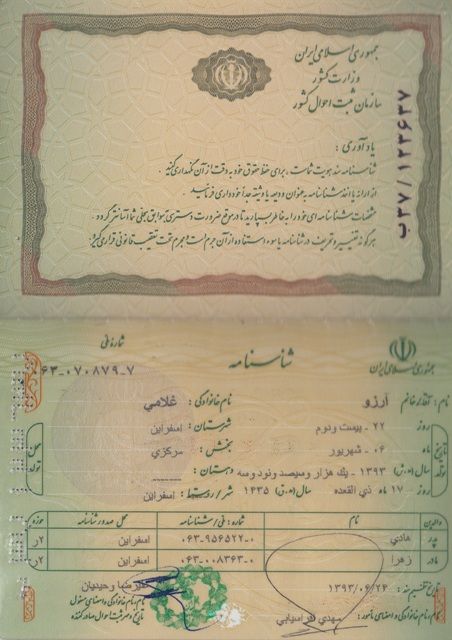 جمهوری اسلامی ایران
وزارت کشور
سازمان ثبت احوال کشور
ب۳۷/۱۲۳۶۳۷
یادآوری :
شناسنامه سند هویت شماست ، برای حفظ حقوق خود به دقت از آن نگهداری کنید .
از ارائه یا اخذ شناسنامه به عنوان ودیعه یا وثیقه جداً خودداری فرمائید .
مشخصات شناسنامه‌ای خود را به خاطر بسپارید تا در موقع ضرورت دسترسی به سوابق سجلی شما آسانتر گردد .
هر گونه تغییر و تحریف در شناسنامه یا سوء استفاده از آن جرم است و مجرم تحت تعقیب قانونی قرار می‌گیرد .
جمهوری اسلامی ایران
شناسنامه
شماره ملی
۰۶۳-۰۷۰۸۷۹-۷
نام : آقا/خانم آرزو نام خانوادگی : غلامی
تاریخ تولد
روز ۲۲ - بیست و دوم
ماه ۰۶ - شهریور
سال (ه.ش) ۱۳۹۳ - یك هزار و سیصد و نود و سه
روز ۱۷ ماه ذي القعده سال (ه.ق) ۱۴۳۵
محل تولد
شهرستان : اسفراین
بخش : مرکزي
دهستان :
شهر / روستا : اسفراین
والدین نام شماره : ملی / شناسنامه محل صدور شناسنامه حوزه
پدر هادي ۰۶۳-۹۵۶۵۲۲-۰ اسفراین ۲ر
مادر زهرا ۰۶۳-۰۰۸۳۶۳-۰ اسفراین ۲ر
تاریخ تنظیم سند : ۱۳۹۳/۰۶/۲۴
علیرضا وحیدیان
نام ، نام خانوادگی و امضای مأمور : مهدي افراسیابي
نام ، نام خانوادگی و امضای مسئول
و مهر ثبت احوال صادرکننده